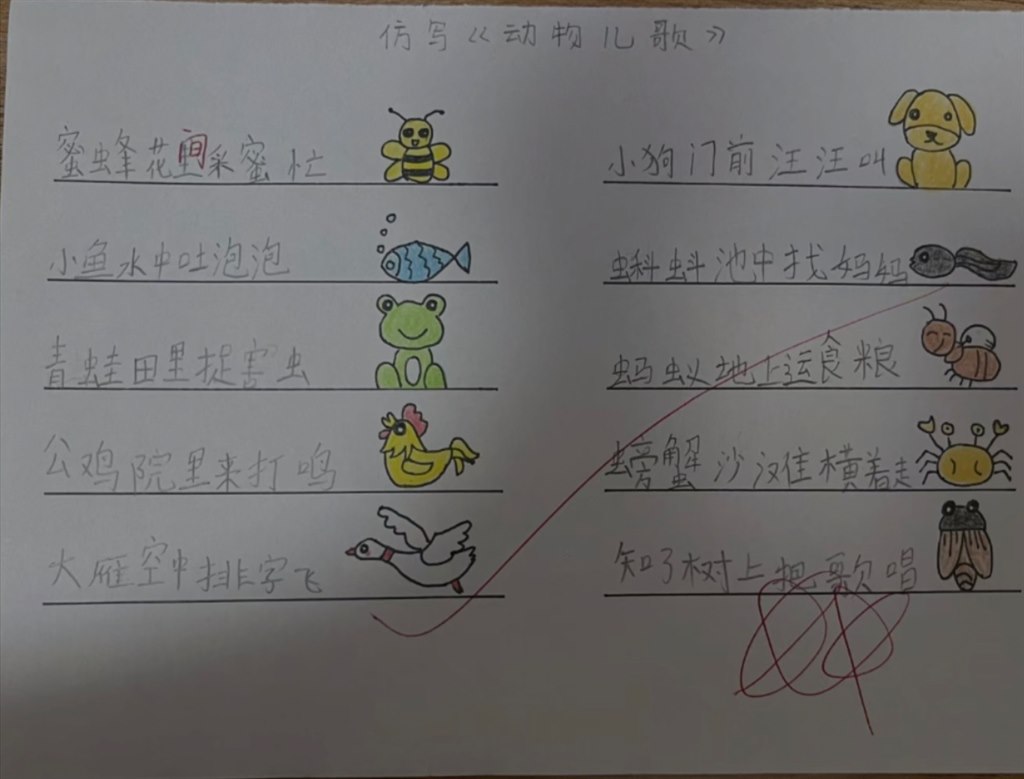 仿写《动物儿歌》
蜜蜂花间采蜜忙
小鱼水中吐泡泡
青蛙田里捉害虫
公鸡院里来打鸣
大雁空中排字飞
小狗门前汪汪叫
蝌蚪池中找妈妈
蚂蚁地上运食粮
螃蟹沙滩横着走
知了树上把歌唱